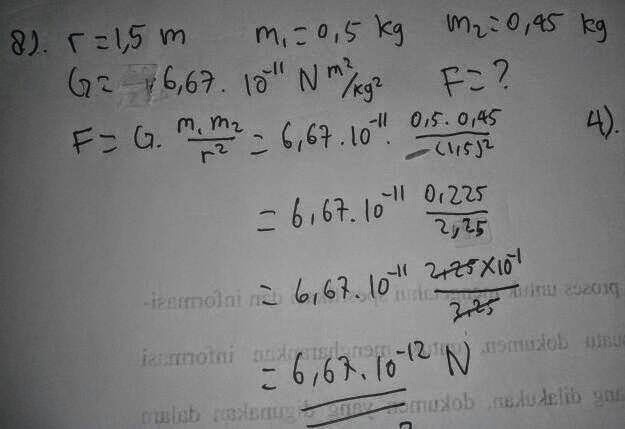 8). r = 1,5 m    m₁ = 0,5 kg    m₂ = 0,45 kg
G = 6,67 . 10⁻¹¹ N m²/kg²    F = ?
F = G. m₁ m₂ / r² = 6,67 . 10⁻¹¹ . 0,5 . 0,45 / (1,5)²    4).
= 6,67 . 10⁻¹¹ 0,225 / 2,25
= 6,67 . 10⁻¹¹ 2,25 × 10⁻¹ / 2,25
= 6,67 . 10⁻¹² N
proses untuk dan informasi-
uatu dokumen, mengharapkan informasi
ang dilakukan, dokumen yang digunakan dalam